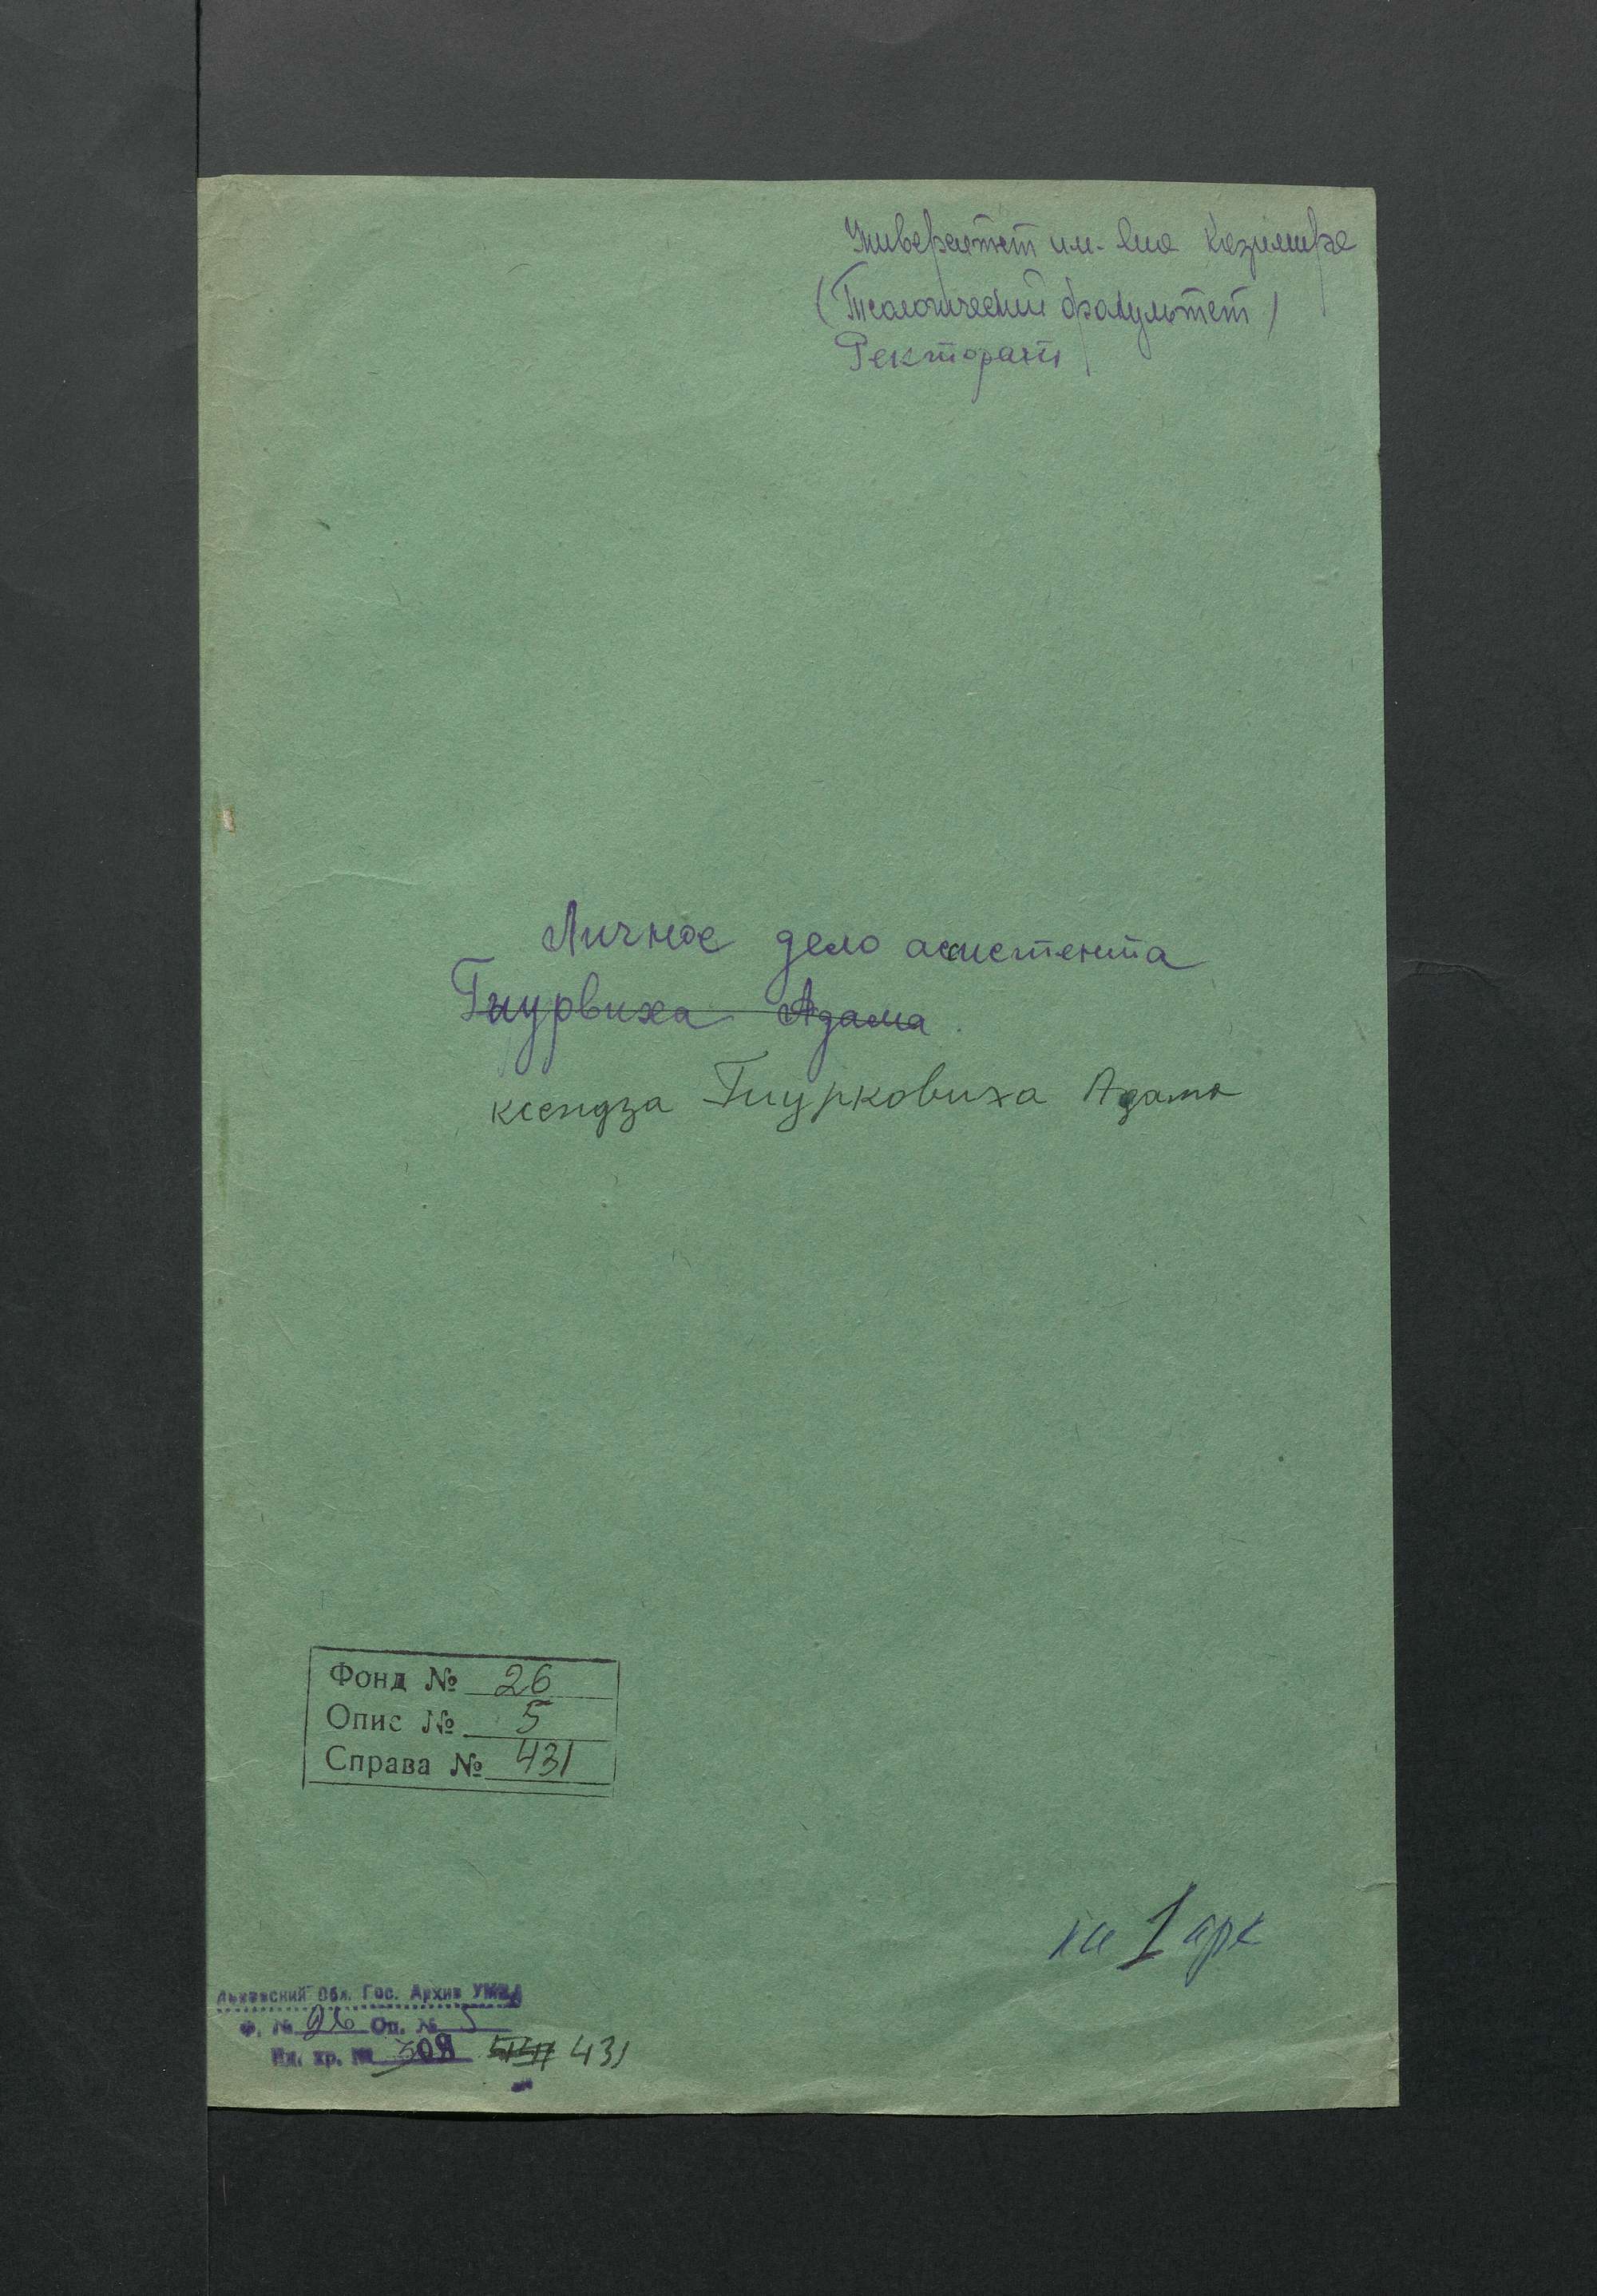 Университет им. Яна Казимира
(Теологический факультет)
Ректорат
Личное дело асистента
Гиурвиха Адама
ксендза Гиурковиха Адама
Фонд № 26
Опис № 5
Справа № 431
на 1 арк
Львовский Обл. Гос. Архив УМВД
Ф. № 26 Оп. № 5
Ед. хр. № 308 431